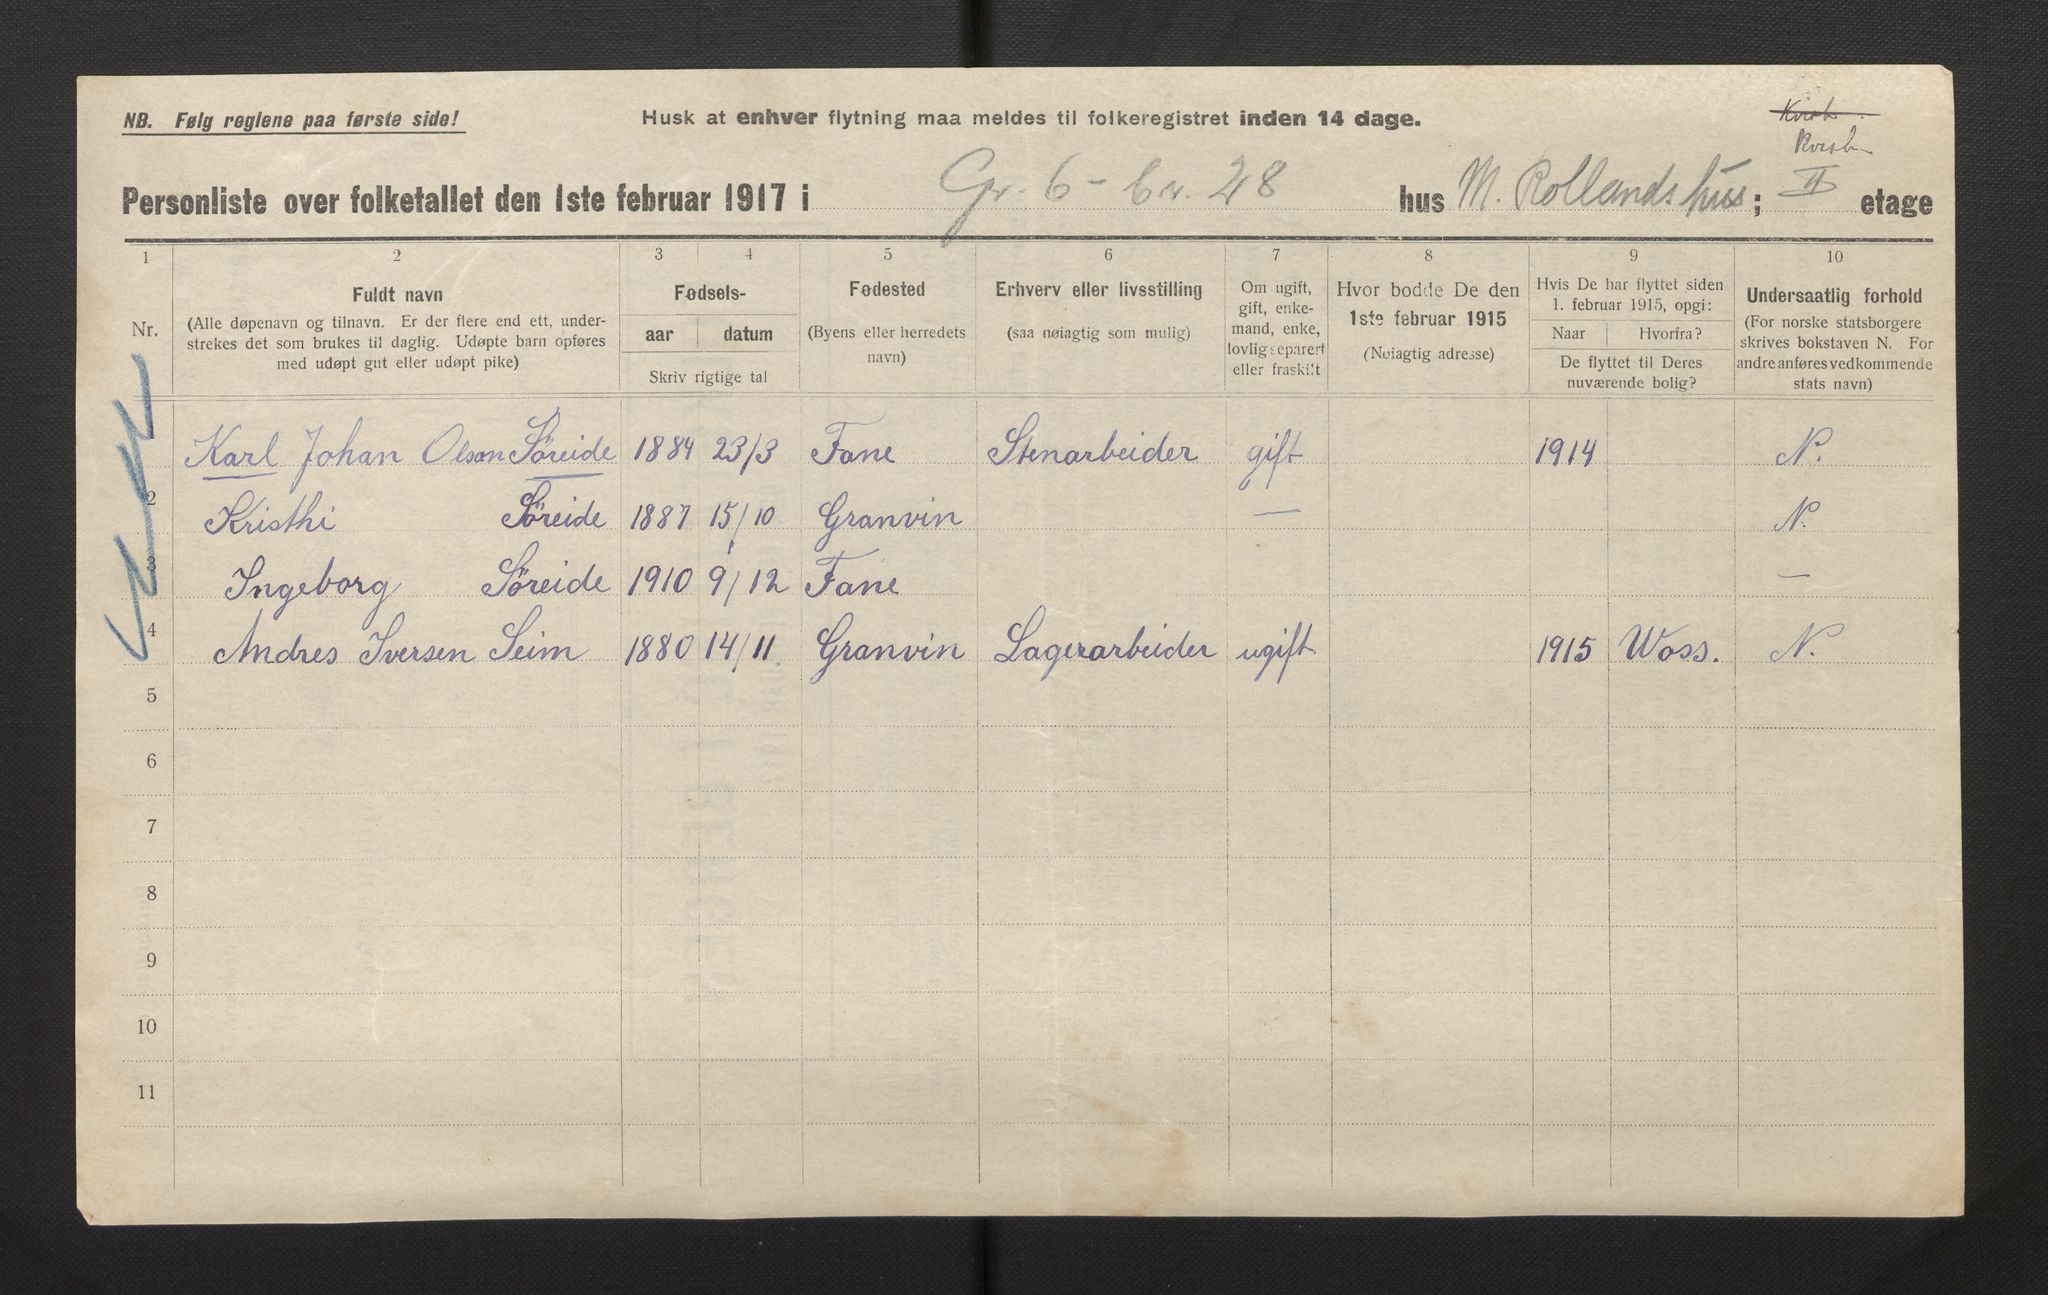 NB. Følg reglene paa første side!
Husk at enhver flytning maa meldes til folkeregistret inden 14 dage.
Personliste over folketallet den 1ste februar 1917 i Gr. 6 - Br. 28 hus M. Rollands hus; II etage
1 2 3 4 5 6 7 8 9 10
Nr.
Fuldt navn
(Alle døpenavn og tilnavn. Er der flere end ett, under-
strekes det som brukes til daglig. Udøpte barn opføres
med udøpt gut eller udøpt pike)
Fødsels-
aar datum
Skriv rigtige tal
Fødested
(Byens eller herredets
navn)
Erhverv eller livsstilling
(saa nøiagtig som mulig)
Om ugift,
gift, enke-
mand, enke,
lovlig separert
eller fraskilt
Hvor bodde De den
1ste februar 1915
(Nøiagtig adresse)
Hvis De har flyttet siden
1. februar 1915, opgi:
Naar Hvorfra?
De flyttet til Deres
nuværende bolig?
Undersaatlig forhold
(For norske statsborgere
skrives bokstaven N. For
andre anføres vedkommende
stats navn)
Karl Johan Olson Søreide 1884 23/3 Fane Stenarbeider gift 1914 N.
2 Kristhi Søreide 1887 15/10 Granvin — N.
3 Ingeborg Søreide 1910 9/12 Fane —
4 Andres Iversen Seim 1880 14/11. Granvin Lagerarbeider ugift 1915 Woss. N.
5
6
7
8
9
10
11